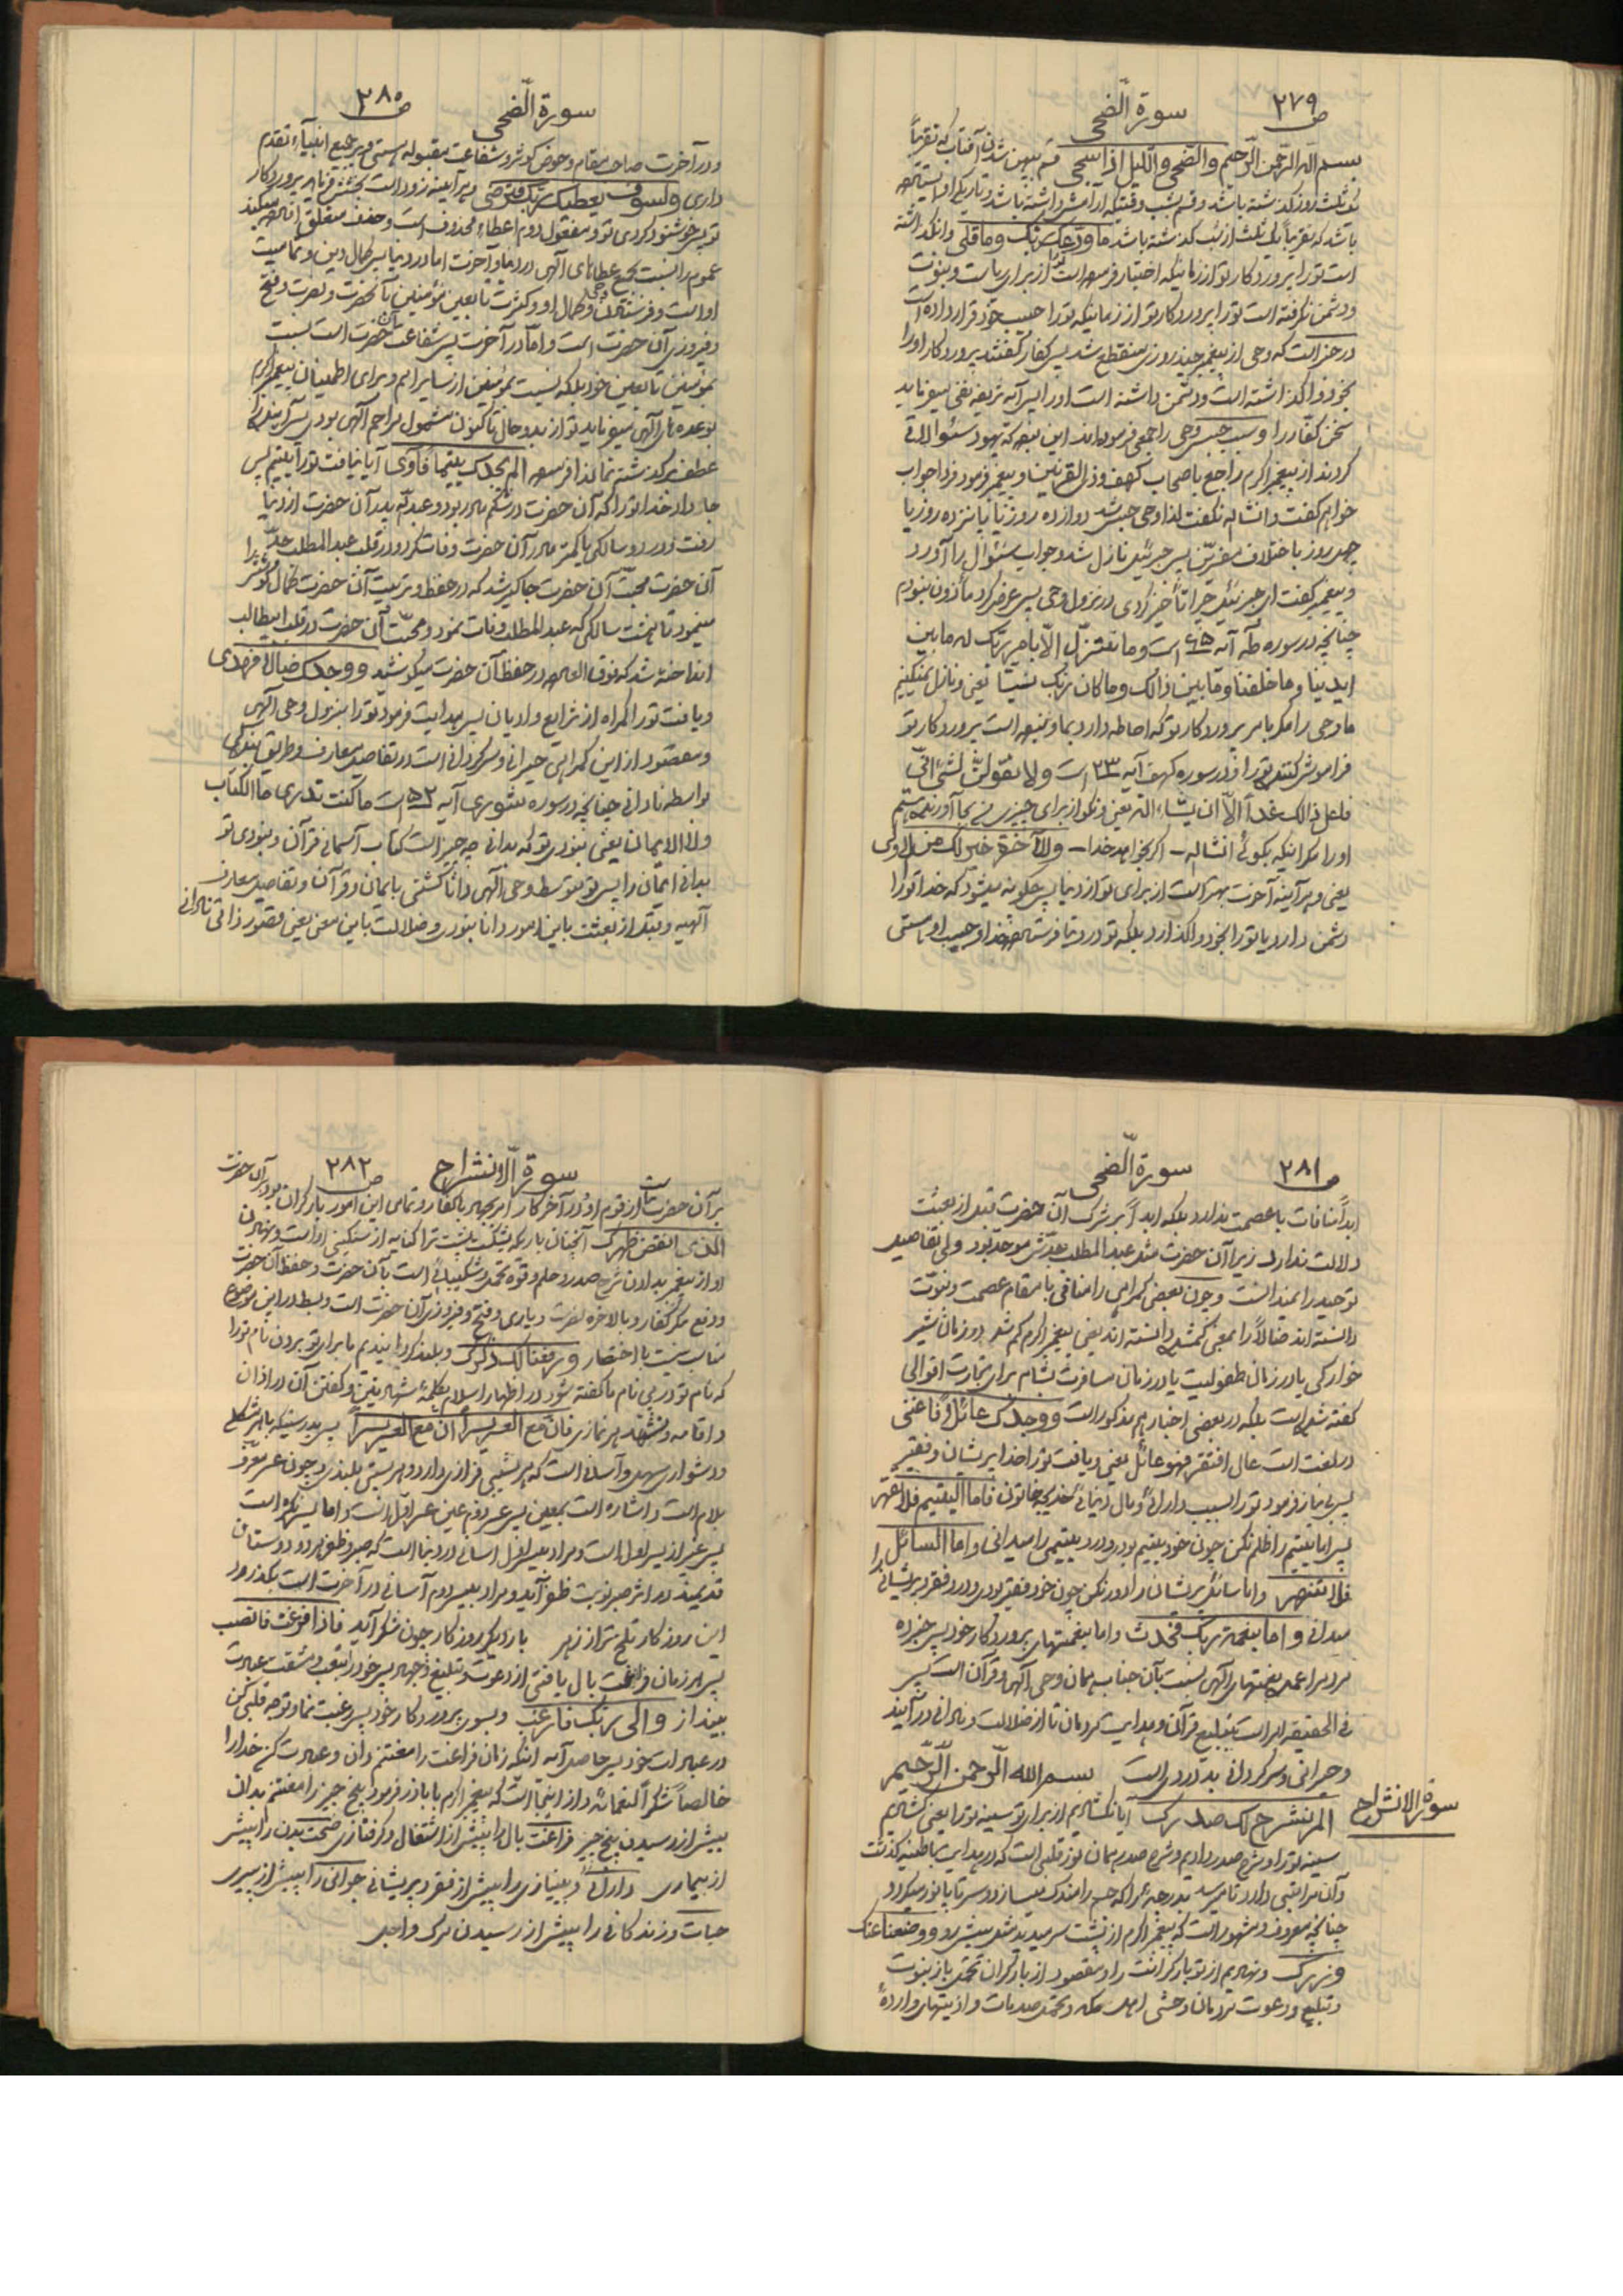 سورة الضحی ص ۲۷۹
بسم الله الرحمن الرحیم والضحی واللیل اذا سجی قسم به پهن شدن آفتاب که تقریباً
یک ثلث روز گذشته باشد وقسم بشب وقتیکه آرامش داشته باشد وتاریکی او
باشد که تقریباً یک ثلث از شب گذشته باشد ما ودعک ربک وما قلی وانگذاشته
است تورا پروردگار تو از زمانیکه اختیار فرموده است تورا از برای رسالت ونبوت
ودشمن نگرفته است تورا پروردگار تو از زمانیکه تورا حبیب خود قرار داده است
در خبر است که وحی از پیغمبر چند روزی منقطع شد پس کفار گفتند پروردگار اورا
بخود واگذاشته است ودشمن داشته است اورا پس آیه شریفه نفی میفرماید
سخن کفار را وسبب حبس وحی را جمعی فرموده اند این بوده که یهود سئوالاتی
کردند از پیغمبر اکرم راجع باصحاب کهف وذی القرنین وپیغمبر فرمود فردا جواب
خواهم گفت وانشاله نگفت لذا وحی حبس شد دوازده روز یا پانزده روز یا
چهل روز باختلاف مفسرین پس جبرئیل نازل شد وجواب سئوال را آورد
وپیغمبر گفت ای جبرئیل چرا تأخیر کردی در نزول وحی پس عرض کرد مأذون نبودم
چنانچه در سوره طه آیه ۶۵ است وما نتنزل الا بامر ربک له مابین
ایدینا وما خلفنا وما بین ذالک وما کان ربک نسیا یعنی ونازل نمیکنیم
ما وحی را مگر بامر پروردگار تو که احاطه دارد بما ونبوده است پروردگار تو
فراموش کننده تورا ودر سوره کهف آیه ۲۳ است ولا تقولن لشئ انی
فاعل ذالک غداً الا ان یشاء الله یعنی ونگو از برای چیزی من بجا آورنده هستم
اورا مگر اینکه بگوئی انشاله - اگر بخواهد خدا - وللآخرة خیر لک من الاولی
یعنی وهر آینه آخرت بهتر است از برای تو از دنیا پس چگونه میشود که خدا تورا
دشمن دارد یا تورا بخود واگذارد بلکه تو در دنیا فرستاده خدا وحبیب او هستی
سورة الضحی ص ۲۸۰
ودر آخرت صاحب مقام وحوض کوثر وشفاعت مقبوله هستی وبر جمیع انبیاء تقدم
داری ولسوف یعطیک ربک فترضی وهر آینه زود است بخشش فرماید پروردگار
تو پس خوشنود گردی تو ومفعول دوم اعطاء محذوف است وحذف متعلق افاده میکند
عموم را نسبت بجمیع عطاهای الهی در دنیا وآخرت اما در دنیا پس کمال دین وتمامیت
او است وفرستادن وحی وکمال او وکثرت تابعین مؤمنین بآنحضرت ونصرت وفتح
وفیروزی آن حضرت است واما در آخرت پس شفاعت آن حضرت است نسبت
بمؤمنین تابعین خود بلکه نسبت بمؤمنین از سایر امم وبرای اطمینان پیغمبر اکرم
بوعده های الهی میفرماید تو از بدو حال تاکنون مشمول مراحم الهی بودی پس آینده را
عطف بر گذشته نما لذا فرموده الم یجدک یتیماً فآوی آیا نیافت تورا یتیم پس
جا داد خدا تورا که آن حضرت در شکم مادر بود وعبدله پدر آن حضرت از دنیا
رفت ودر دو سالگی یا کمتر مادر آن حضرت وفات کرد ودر قلب عبدالمطلب جد
آن حضرت محبت آن حضرت جاگیر شد که در حفظ وتربیت آن حضرت کمال کوشش را
مینمود تا هشت سالگی که عبدالمطلب وفات نمود ومحبت آن حضرت در قلب ابیطالب
انداخته شد که فوق العاده در حفظ آن حضرت میکوشید ووجدک ضالاً فهدی
ویافت تورا گمراه از شرایع وادیان پس هدایت فرمود تورا بنزول وحی الهی
ومقصود از این گمراهی حیرانی وسرگردانی است در تفاصیل معارف وطریق بندگی
بواسطه نادانی چنانچه در سوره شوری آیه ۵۲ است ما کنت تدری ما الکتاب
ولا الایمان یعنی نبودی تو که بدانی چه چیز است کتاب آسمانی قرآن ونبودی تو
بدانی ایمان را پس تو بتوسط وحی الهی دانا گشتی بایمان وقرآن وتفاصیل معارف
الهیه وقبل از بعثت باین امور دانا نبودی وضلالت باین معنی یعنی قصور ذاتی نادانی
سورة الضحی ص ۲۸۱
ابداً منافات با عصمت ندارد بلکه ابداً بر شرک آن حضرت قبل از بعثت
دلالت ندارد زیرا آن حضرت مثل عبدالمطلب جدش موحد بود ولی تفاصیل
توحید را نمیدانست وچون بعضی گمراهی را منافی با مقام عصمت ونبوت
دانسته اند ضالاً را بمعنی گمشده دانسته اند یعنی پیغمبر اکرم گم شد در زمان شیر
خوارگی یا در زمان طفولیت یا در زمان مسافرت بشام برای تجارت اقوالی
گفته شده است بلکه در بعضی اخبار هم مذکور است ووجدک عائلاً فاغنی
در لغت است عال افتقر فهو عائل یعنی ودریافت تورا خدا پریشان وفقیر
پس بی نیاز فرمود تورا بسبب دارائی ومال دنیائی خدیجه خاتون فاما الیتیم فلا تقهر
پس اما یتیم را ظلم نکن چون خود یتیم بودی ودرد یتیمی را میدانی واما السائل
فلا تنهر واما سائل پریشان را دور نکن چون خود فقیر بودی ودرد فقر وپریشانی را
میدانی واما بنعمة ربک فحدث واما بنعمتهای پروردگار خود پس خبر ده
مردم را عمده نعمتهای الهی نسبت بآن جناب همان وحی الهی وقرآن است پس
فی الحقیقه امر است بتبلیغ قرآن وهدایت مردمان تا از ضلالت ونادانی درآیند
وحیرانی وسرگردانی بد دردی است بسم الله الرحمن الرحیم
سورة الانشراح
الم نشرح لک صدرک آیا نگشادیم از برای تو سینه تورا یعنی گشادیم
سینه تورا وشرح صدر دادیم وشرح صدر همان نور قلبی است که در هدایت باطنیه گذشت
وآن مراتبی دارد تا میرسد بدرجه ئی که جسم را مندک میسازد وسر تا پا نور میگردد
چنانچه معروف ومشهور است که پیغمبر اکرم از پشت سر میدید مثل پیش رو ووضعنا عنک
وزرک ونهادیم از تو بار گرانت را ومقصود از بار گران تحمل بار نبوت
وتبلیغ ودعوت مردمان وحشی اهل مکه وتحمل صدمات واذیتهای وارده
سورة الانشراح ص ۲۸۲
بر آن حضرت از قوم او ودر آخر کار امر بجهاد با کفار وتمامی این امور بار گران بود بر آن حضرت
الذی انقض ظهرک آنچنان باریکه بشکست پشت ترا کنایه از سنگینی او است ونهادن
او از پیغمبر بدادن شرح صدر وحلم وقوه تحمل وشکیبائی است بآن حضرت وحفظ آن حضرت
ودفع مکر کفار وبالاخره نصرت ویاری وفتح وفیروزی آن حضرت است وبسط در این موضوع
مناسب نیست با اختصار ورفعنا لک ذکرک وبلند گردانیدیم ما برای تو بردن نام تورا
که نام تو در پی نام ما گفته شود در اظهار اسلام بکلمهٔ شهادتین وگفتن آن در اذان
واقامه وتشهد هر نماز فان مع العسر یسراً ان مع العسر یسراً پس بدرستیکه با هر مشکلی
ودشواری سهل وآسانی است که هر نشیبی فرازی دارد وهر پستی بلندی وچون عسر معرف
بلام است واشاره است بمعین پس عسر دوم عین عسر اول است واما یسر نکره است
پس غیر از یسر اول است ومراد بیسر اول آسانی در دنیا است که صبر وظفر هر دو دوستان
قدیمند در اثر صبر نوبت ظفر آید ومراد بیسر دوم آسانی در آخرت است بگذرد
این روزگار تلخ تر از زهر بار دیگر روزگار چون شکر آید فاذا فرغت فانصب
پس هر زمان فراغت بال یافتی از دعوت وتبلیغ وجهاد پس خود را بتعب ومشقت عبادت
بینداز والی ربک فارغب وبسوی پروردگار خود پس رغبت نما وتوجه قلبی کن
در عبادات خود پس حاصل آیه اینکه زمان فراغت را مغتنم دان وعبادت کن خدا را
خالصاً شکراً لنعمائه واز اینجا است که پیغمبر اکرم باباذر فرمود پنج چیز را مغتنم بدان
پیش از رسیدن پنج چیز فراغت بال را پیش از اشتغال وگرفتاری صحت بدن را پیش
از بیماری دارائی وبینیازی را پیش از فقر وپریشانی جوانی را پیش از پیری
حیات وزندگانی را پیش از رسیدن مرگ واجل